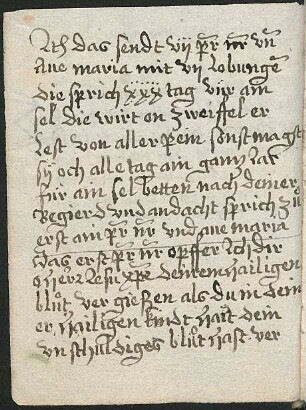 Ith das sendt vij pr̄ nr̄ vn̄
Aue maria mit vij lobungē
die sprich xxx tag vür ain
sel die wirt on zweiffel er
lest von aller pein sonst magst
sÿ och alle tag ain gantz iar
für ain sel betten nach deiner
Begierd vnd andacht sprich zů
erst ain pr̄ nr̄ vnd aue maria
Das erst pr̄ nr̄ opffer ich dir
O herr Jesu xpe deinem hailigen
blůt ver gießen als du in dein
er hailigen kindthait dein
vnschuldiges blůt hast ver